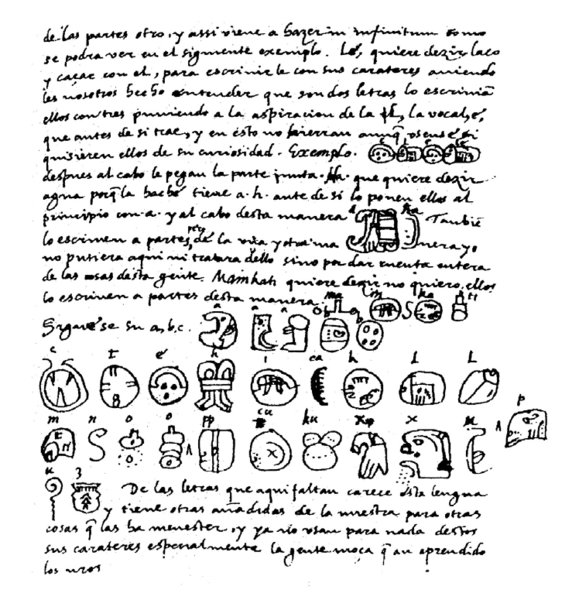 de las partes otro, y assi viene a hazer in infinitum como
se podra ver en el siguiente exemplo. Lé, quiere dezir laço
y caçar con el, para escrivirle con sus carateres aviendo
les nosotros hecho entender que son dos letras lo escrivian
ellos con tres puniendo a la aspiracion de la ł, la vocal, é,
que antes de si trae, y en esto no hierran aunq̃ osense si
quisieren ellos de su curiosidad. Exemplo.
despues al cabo le pegan la parte junta. Ha que quiere dezir
agua porq̃ la haché tiene a.h. ante de si lo ponen ellos al
principio con a. y al cabo desta manera
a ha
Tambiē
lo escriven a partes de la una y otra ma nera yo
no pusiera aqui ni tratara dello sino por dar cuenta entera
de las cosas desta gente. Mainkati quiere dezir no quiero ellos
lo escriven a partes desta manera:
ma i n ka ti
Siguese su a, b, c.
a a a b b
c t é h i ca k l L
m n o o pp cu ku x x u p
u z
De las letras que aqui faltan carece esta lengua
y tiene otras añadidas de la nuestra para otras
cosas q̃ las ha menester, y ya no usan para nada destos
sus carateres especialmente la gente moça q̃ an aprendido
los nros